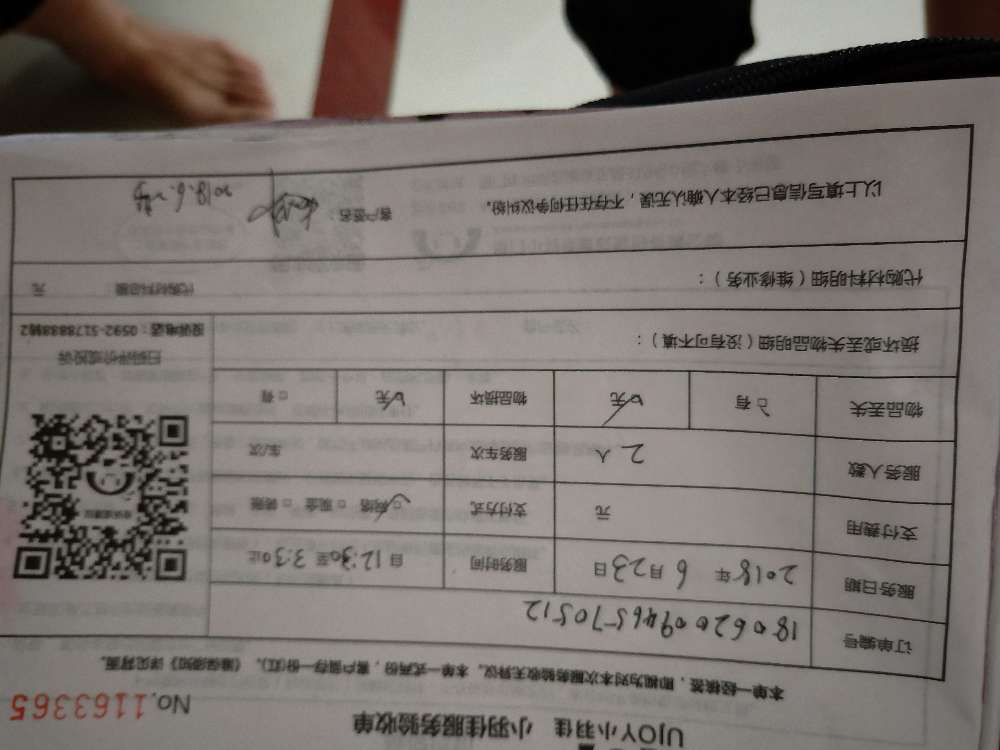 UJOY小羽佳 小羽佳服务验收单
No.1163365
本单一经核签，即视为对本次服务验收无异议。本单一式两份，客户留存一份(红)，《温馨须知》详见背面。
订单编号 1806200946570512
服务日期 2018年 6月23日 服务时间 自12:30至3:30止
支付费用 元 支付方式 □网络 □现金 □转账
服务人数 2人 服务车次 车/次
物品丢失 □有 □无 物品损坏 □无 □有
扫码评价或投诉
投诉电话：0592-5178888转2
损坏或丢失物品明细（没有可不填）：
代购材料明细（维修业务）： 代购材料总额： 元
以上填写信息已经本人确认无误，不存在任何争议纠纷。 客户签名：
2018.6.23